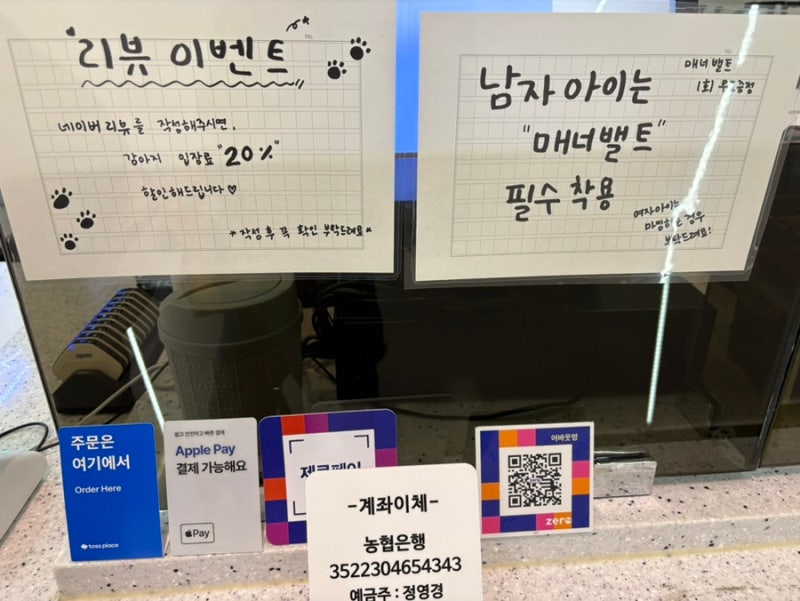 리뷰 이벤트
네이버 리뷰를 작성해주시면,
강아지 입장료 "20%"
할인해드립니다♡
*작성 후 꼭 확인 부탁드려요*
No.
매너밸트
1회
남자아이는
"매너밸트"
필수 착용
여자아이는
경우
부탁드려요!
주문은
여기에서
Order Here
toss place
쉽고 안전하고 빠른 결제
Apple Pay
결제 가능해요
Pay
제로페이
-계좌이체-
농협은행
3522304654343
예금주 : 정영경
어바웃펌
zero